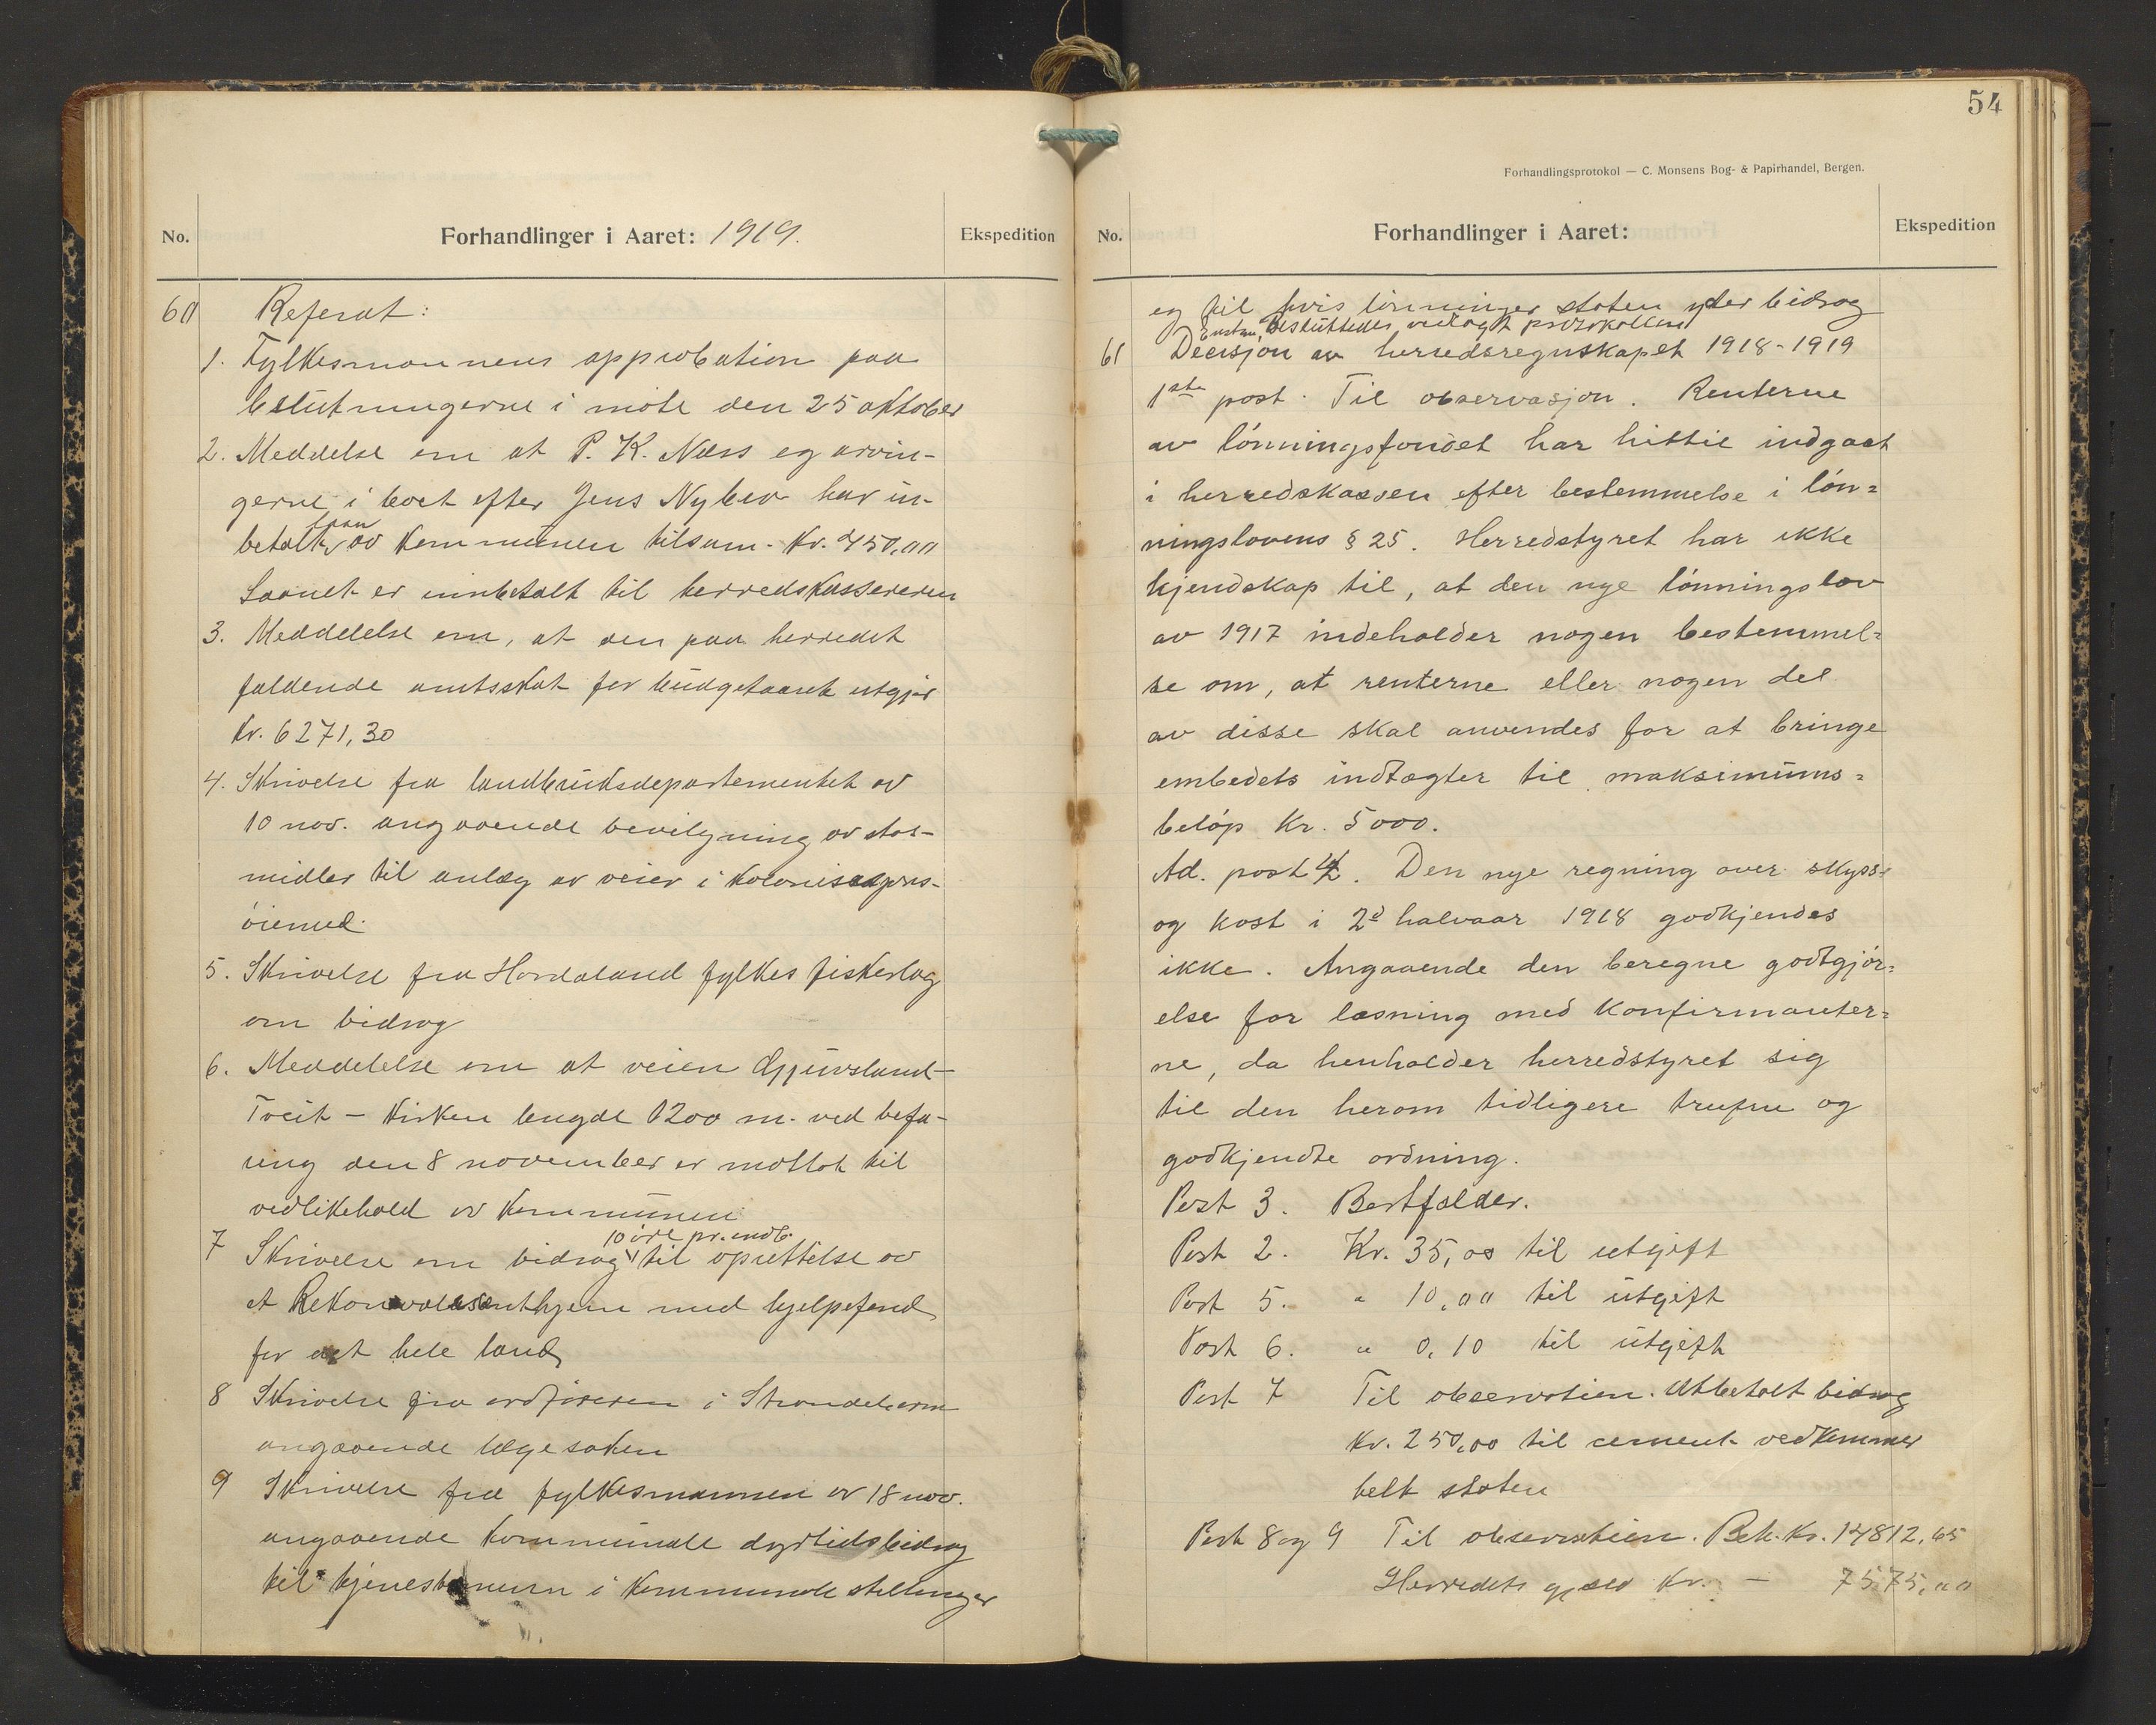 No.
Forhandlinger i Aaret: 1919.
Ekspedition
60 Referat:
1. Fylkesmannens approbation paa
beslutningerne i møte den 25 oktober
2. Meddelse om at P. K. Næss og arvin-
gerne i boet efter Jens Nybø har in-
betalt laan av Kommunen tilsam. Kr. 450,00
Laanet er innbetalt til herredskassereren
3. Meddelelse om, at den paa herredet
faldende amtsskat for budgetaaret utgjør
Kr. 6271,30
4. Skrivelse fra landbruksdepartementet av
10 nov. angaaende bevilgning av stats-
midler til anlæg av veier i Kolonisasjons-
øiemed.
5. Skrivelse fra Hordaland fylkes fiskerlag
om bidrag
6. Meddelelse om at veien Gjuvsland-
Tveit - Kirken lengde 1200 m. ved befa-
ring den 8 november er mottat til
vedlikehold av Kommunen
7 Skrivelse om bidrag 10 øre pr. indb. til oprettelse av
et Rekonvalesenthjem med hjelpefond
for det hele land
8 Skrivelse fra ordføreren i Strandebarm
angaaende lægesaken
9 Skrivelse fra fylkesmannen av 18 nov.
angaaende kommunale dyrtidsbidrag
til tjenestemenn i kommunale stillinger
54
Forhandlingsprotokol — C. Monsens Bog- & Papirhandel, Bergen.
No.
Forhandlinger i Aaret:
Ekspedition
og til hvis lønninger staten yder bidrag
besluttedes vedlagt protokollen
61 Decisjon av herredsregnskapet 1918-1919
1ste post. Til observasjon. Renterne
av lønningsfondet har hittil indgaat
i herredskassen efter bestemmelse i løn=
ningslovens § 25. Herredstyret har ikke
kjendskap til, at den nye lønningslov
av 1917 indeholder nogen bestemmel=
se om, at renterne eller nogen del
av disse skal anvendes for at bringe
embedets indtægter til maksimums=
beløp Kr. 5000.
Ad. post 4. Den nye regning over skyss=
og kost i 2d halvaar 1918 godkjendes
ikke. Angaaende den beregne godtgjør=
else for læsning med konfirmanter=
ne, da henholder herredstyret sig
til den herom tidligere trufne og
godkjendte ordning.
Post 3. Bortfalder.
Post 2. Kr. 35,00 til utgift
Post 5. " 10,00 til utgift
Post 6. " 0,10 til utgift
Post 7 Til observation. Utbetalt bidrag
Kr. 250,00 til cement vedkommer
helt staten
Post 8 og 9 Til observation. Beh. Kr. 14812,65
Herredets gjeld Kr. — 7575,00